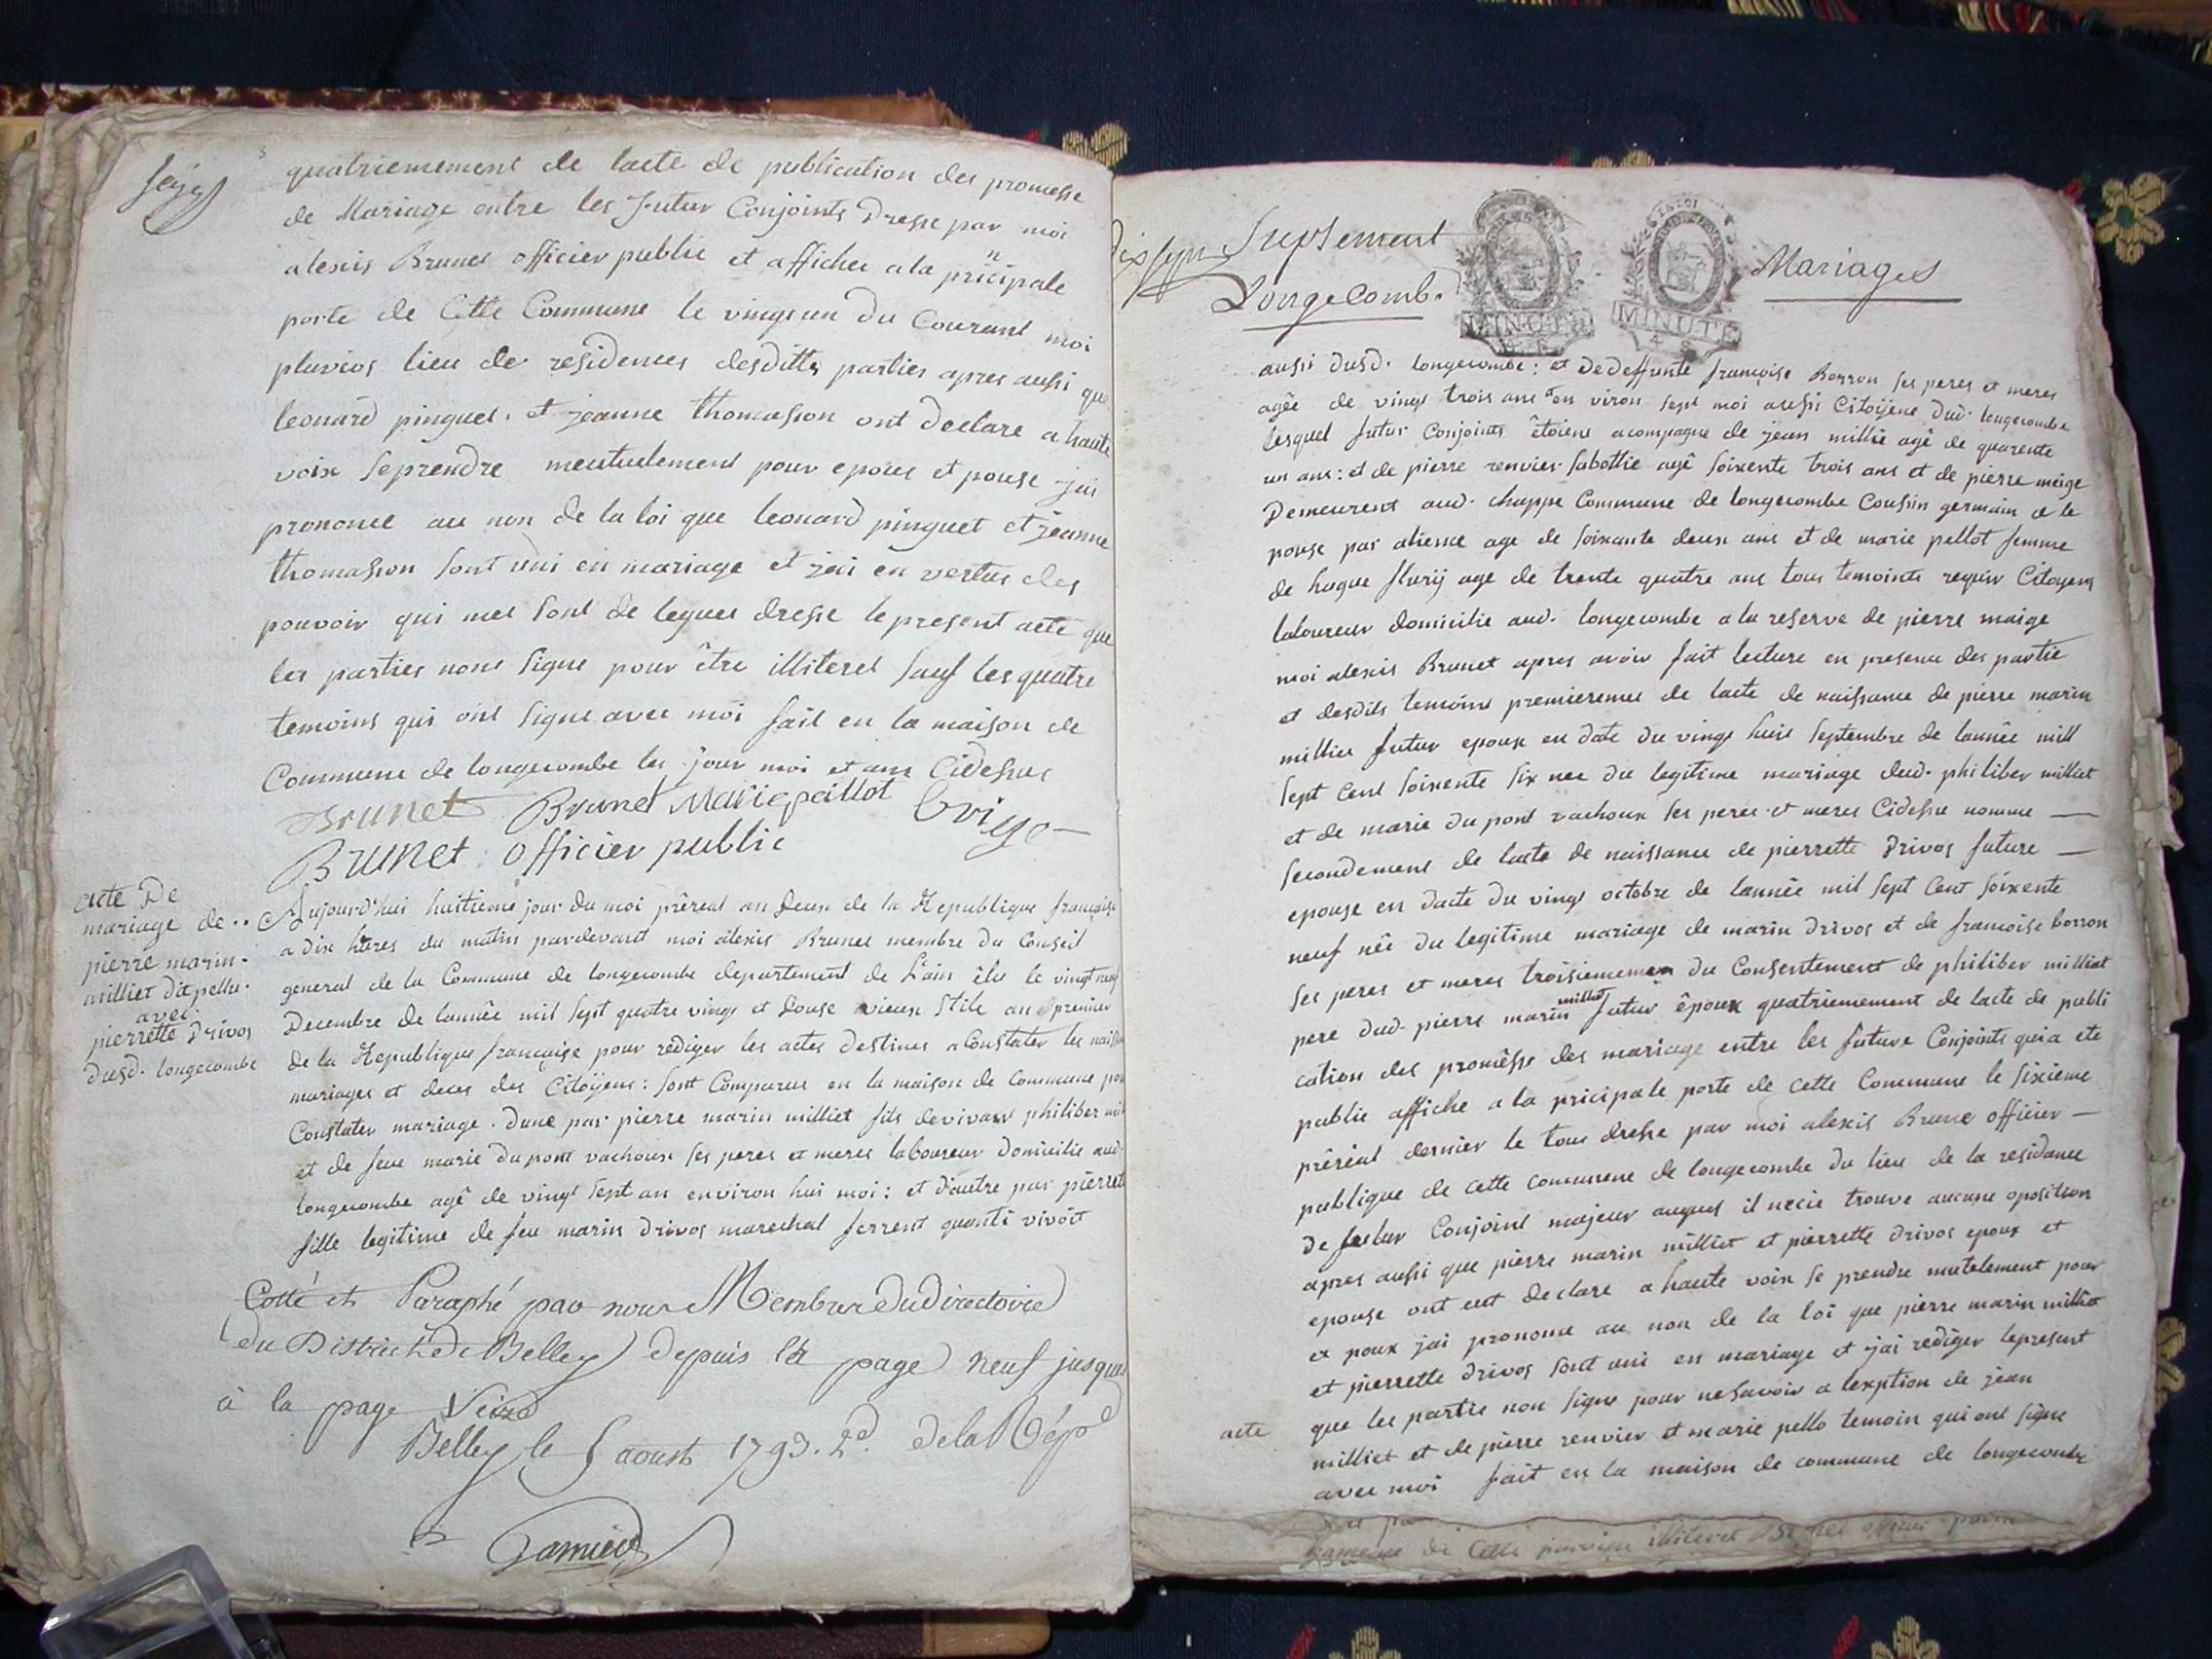 quatriemement de lacte de publication des promesse
de Mariage entre les futur Conjoints Dresse par moi
alexis Brunet officier public et affichee a la pricipale
n
porte de Cette Commune le vingt un du Courant moi
pluvios lieu de residences desditts parties apres aussi que
leonard pinguet. et jeanne thomasson ont declare a haute
voix se prendre meutuelement pour epous et pouse jai
prononce au non de la loi que leonard pinguet et jeanne
thomasson sont uni en mariage et jai en vertus des
pouvoir qui me sont de legues dresse le present acte que
les parties nont signe pour être illiteres sauf les quatre
temoins qui ont signe avec moi fait en la maison de
Commune de longecombe les jour moi et ans Cidessus
Brunet Brunet Marie paillot
Brunet officier public
acte De
mariage de ..
pierre marin.
milliet dit pellu.
avec
pierrette Drivos
dusd. longecombe
Aujourd'hui huitieme jour du moi prêreal an deux de la Republique françaïse
a dix hüres du matin pardevant moi alexis Brunet membre du Conseil
general de la Commune de longecombe departement de Lain êlu le vingt neuf
Decembre de lannêe mil sept quatre vingt et douse vieux stile an premier
de la Republique françoise pour rediger les actes destines a Constater les
mariages et deces des Citoÿens : sont Comparus en la maison de commune pour
Constater mariage. dune par pierre marin milliet fils de vivant philiber
et de feue marie dupont vachoux ses peres et meres laboureur domicilie aud.
longecombe agê de vingt sept an environ hui moi : et d'autre par pierrette
fille legitime de feu marin Drivos marechal ferrent quanti vivoit
Cotté et Paraphé par nous Membres du Directoire
du District de Belley depuis la page neuf jusques
à la page Seize
Belley le 5 aoust 1793. 2d. de la Rép
Suplement
Longecomb.
MINUTE
MINUTE
Mariages
aussi dusd. longecombe : et de deffunte françoise Borron ses peres et meres
agêe de vingt trois ans en viron sept moi aussi Citoÿene dud. longecombe
lesquel futur Conjoints êtoient acompagne de jean millie agê de quarente
un ans : et de pierre renvier sabottie agê soixente trois ans et de pierre meige
Demeurent aud. chappe Commune de longecombe Coussin germain de le
pouse par alience age de soixante deux ans et de marie pellot femme
de hugue flurij age de trente quatre ans tous temoints requis Citoyens
laboureur domicilie aud. longecombe a la reserve de pierre maige
moi alexis Brunet apres avoir fait lecture en presence des partie
et desdits temoins premieremet de lacte de naissance de pierre marin
milliet futur epoux en date du vingt huit septembre de lannêe mill
sept cent soixente six nee du legitime mariage dud. philiber milliet
et de marie du pont vachoux ses peres et meres Cidessu nomme —
secondement de lacte de naissance de pierrette Drivos future —
epouse en dacte du vingt octobre de lannêe mil sept cent soixente
neuf nêe du legitime mariage de marin drivos et de francoise borron
ses peres et meres troisiememen du Consentement de philiber milliet
pere dud. pierre marin milliet futur êpoux quatriemement de lacte de publi
cation des promêsse des mariage entre les future Conjoints qui a ete
public affiche a la pricipale porte de cette Commune le sixieme
prêreal dernier le tous dresse par moi alexis Brunet officier —
publique de cette commune de longecombe du lieu de la residance
de futur Conjoint majeur auquel il trouve aucune oposition
apres aussi que pierre marin milliet et pierrette drivos epoux et
epouse ont declare a haute voix se prendre mutelement pour
e poux jai prononce au non de la loi que pierre marin milliet
et pierrette drivos sont uni en mariage et jai rediger le present
acte que les partie non signe pour ne savoir a lexption de jean
milliet et de pierre renvier et marie pello temoin qui ont signe
avec moi fait en la maison de commune de longecombe
de Cette